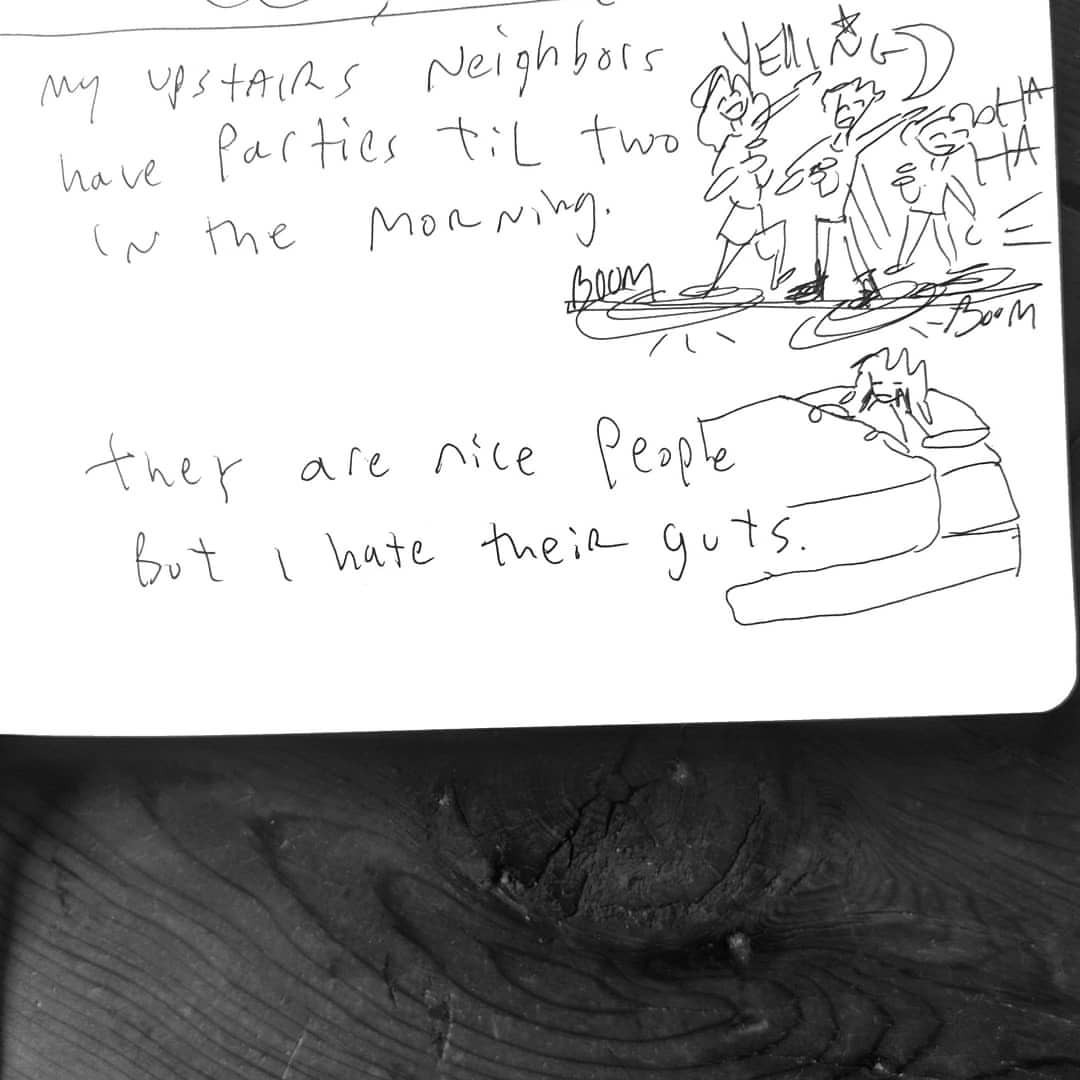 My UPSTAIRS Neighbors
have Parties TiL two
IN the MORNing.
YELLING
HA
HA
BOOM
BOOM
they are nice People
But I hate theiR guts.